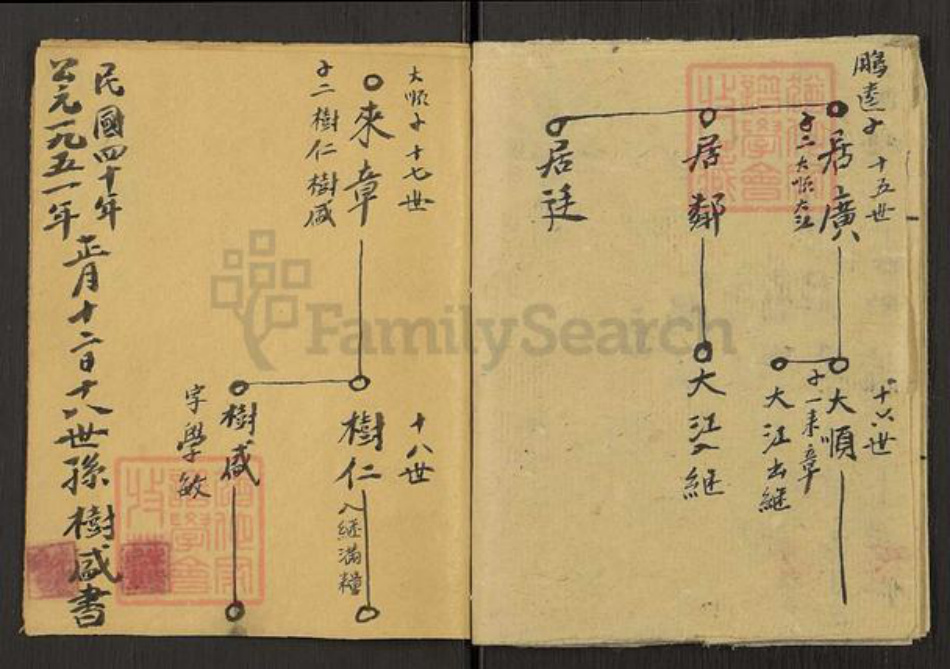 鵬逵子 十五世
居廣
子二大順大江
居鄰
居廷
十六世
大順
子一来章
大江出継
大江入継
大順子十七世
來章
子二樹仁樹咸
十八世
樹仁
入継満糧
樹咸
字學敏
民國四十年
公元一九五一年
正月十二日十八世孫 樹咸書
FamilySearch